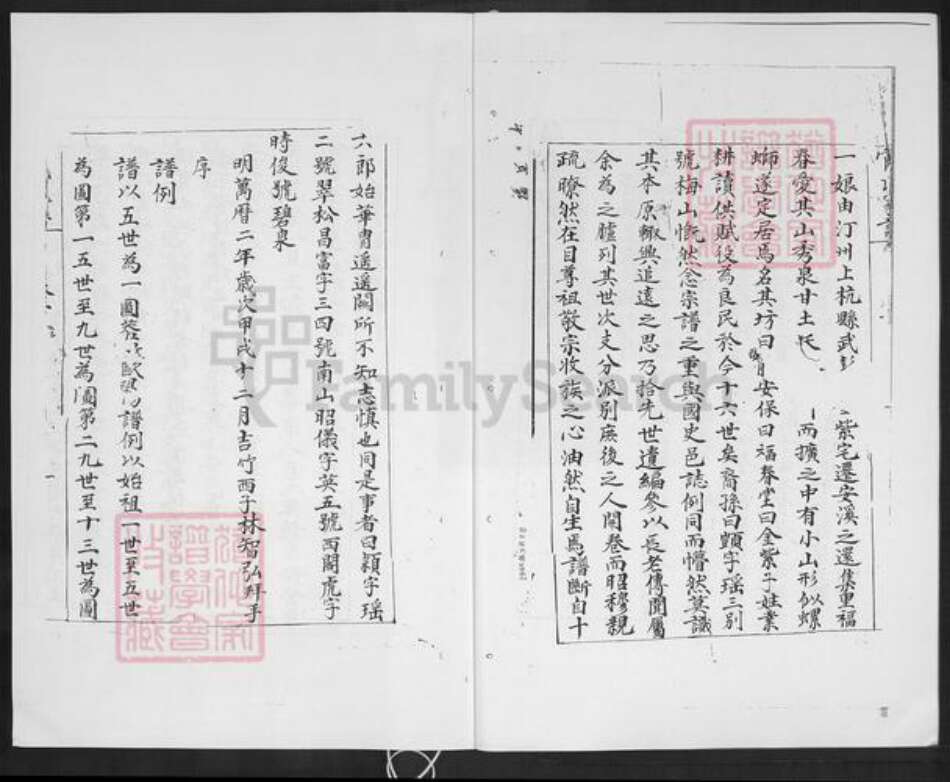 一娘由汀州上杭縣武彭 紫宅遷安溪之還集里福
春愛其山秀泉甘土 兩擴之中有小山形似螺
螄遂定居焉名其坊曰 安保曰福春堂曰金紫子姓業
耕讀供賦役為良民於今十六世矣裔孫曰顗字瑤三別
號梅山慨然念宗譜之重與國史邑誌例同而懵然莫識
其本原輙興追遠之思乃拾先世遺編參以長老傳聞屬
余為之臚列其世次支分派別庶後之人開卷而昭穆親
疏瞭然在目尊祖敬宗收族之心油然自生焉譜斷自十
六郎始華胄遥遥闕所不知志慎也同是事者曰穎字瑤
二號翠松昌富字三四號南山昭儀字英五號西閣虎字
時俊號碧泉
明萬曆二年歲次甲戌十二月吉竹西子林智弘拜手
序
譜例
譜以五世為一圖 歐 譜例以始祖一世至五世
為圖第一五世至九世為圖第二九世至十三世為圖
FamilySearch